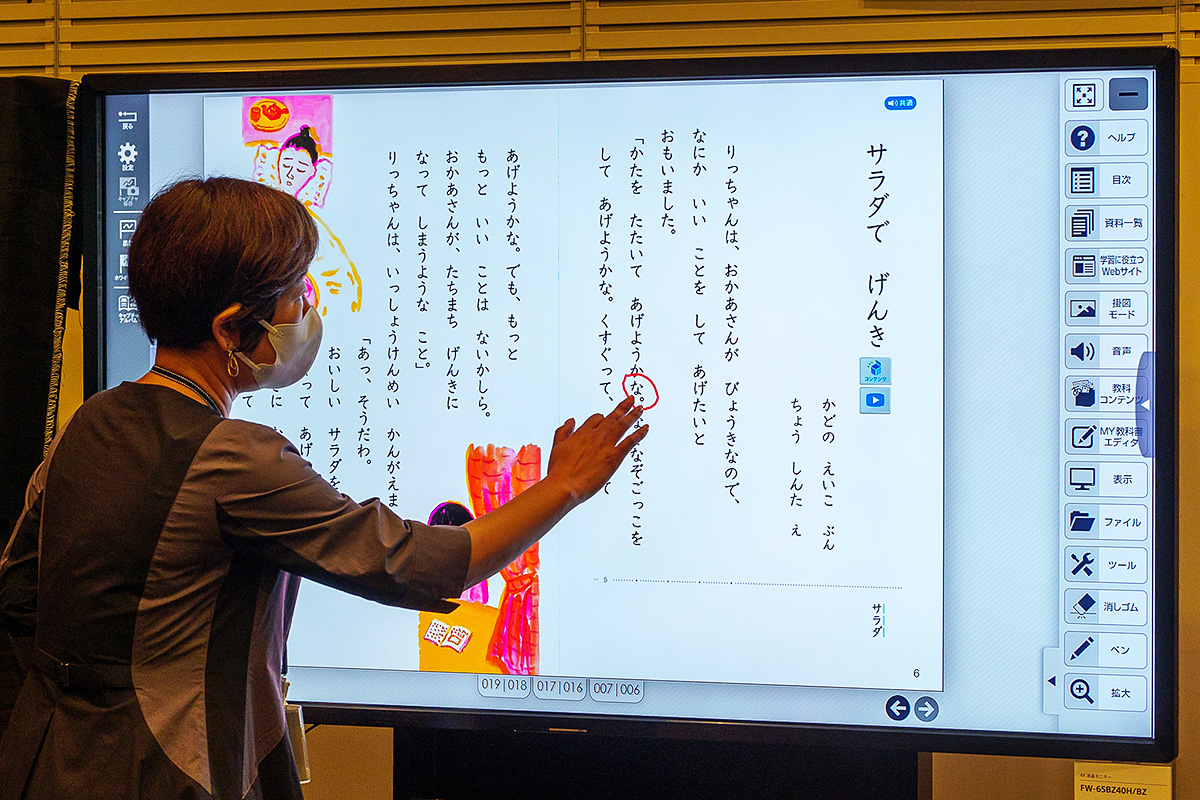 共通
サラダで げんき
コンテンツ
かどの えいこ ぶん
ちょう しんた え
りっちゃんは、おかあさんが びょうきなので、
なにか いい ことを して あげたいと
おもいました。
「かたを たたいて あげようかな。なぞなぞごっこを
して あげようかな。くすぐって、
て
あげようかな。でも、もっと
もっと いい ことは ないかしら。
おかあさんが、たちまち げんきに
なって しまうような こと」
りっちゃんは、いっしょうけんめい かんがえま
「あっ、そうだわ。
おいしい サラダを
って あげ
に
て
5
サラダ
6
019|018
017|016
007|006
戻る
設定
キャプチャ
ヘルプ
目次
資料一覧
学習に役立つ
Webサイト
掛図
モード
音声
教科
コンテンツ
MY教科書
エディタ
表示
ファイル
ツール
消しゴム
ペン
拡大
4K 液晶モニター
FW-65BZ40H/BZ